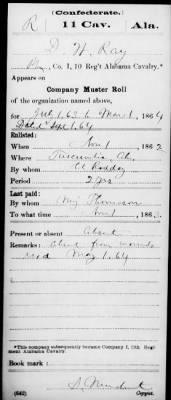 (Confederate.)
R 11 Cav. Ala.
D. H. Ray
Co. I, 10 Reg't Alabama Cavalry.*
Appears on
Company Muster Roll
of the organization named above,
for July 1, 63 to Mar 1, 1864
Dated Sept 1, 64
Enlisted:
When Nov 1 1862
Where Tuscumbia, Ala.
By whom Roddy
Period 2 yrs
Last paid:
By whom Maj Thomason
To what time Nov 1 1863
Present or absent Absent
Remarks: Absent from wounds
recd May 1, 64
*This company subsequently became Company I, 11th Regiment
Alabama Cavalry.
Book mark:
(642) Copyist.